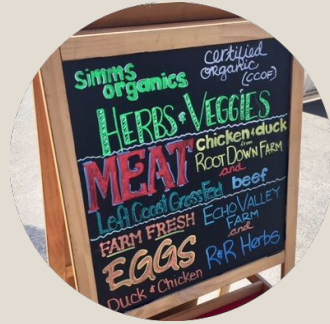 Simms organics
certified organic (CCOF)
HERBS & VEGGIES
MEAT chicken & duck
from
ROOT DOWN FARM
and
Left Coast GrassFed beef
FARM FRESH
EGGS
Duck & Chicken
ECHO VALLEY FARM
and
R&R Herbs